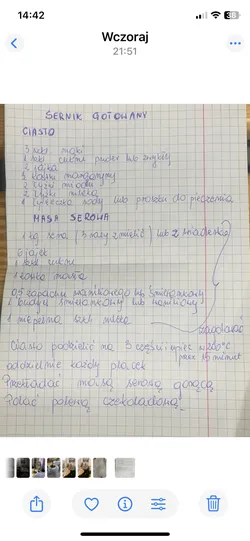 14:42
Wczoraj
21:51
SERNIK GOTOWANY
CIASTO
3 szkl. mąki
1 szkl. cukru puder lub zwykły
2 jajka
1 kostka margaryny
2 łyżki miodu
2 łyżki mleka
1 łyżeczka sody lub proszku do pieczenia
MASA SEROWA
1 kg sera (3 razy zmielić) lub z wiaderka
6 jajek
1 szkl. cukru
1 kostka masła
0,5 zapachu waniliowego lub śmietankowy
1 budyń śmietankowy lub waniliowy
1 niepełna szkl. mleka
zagotować
Ciasto podzielić na 3 części i upiec w 200°C
oddzielnie każdy placek przez minut
Przekładać masą serową gorącą
Polać polewą czekoladową